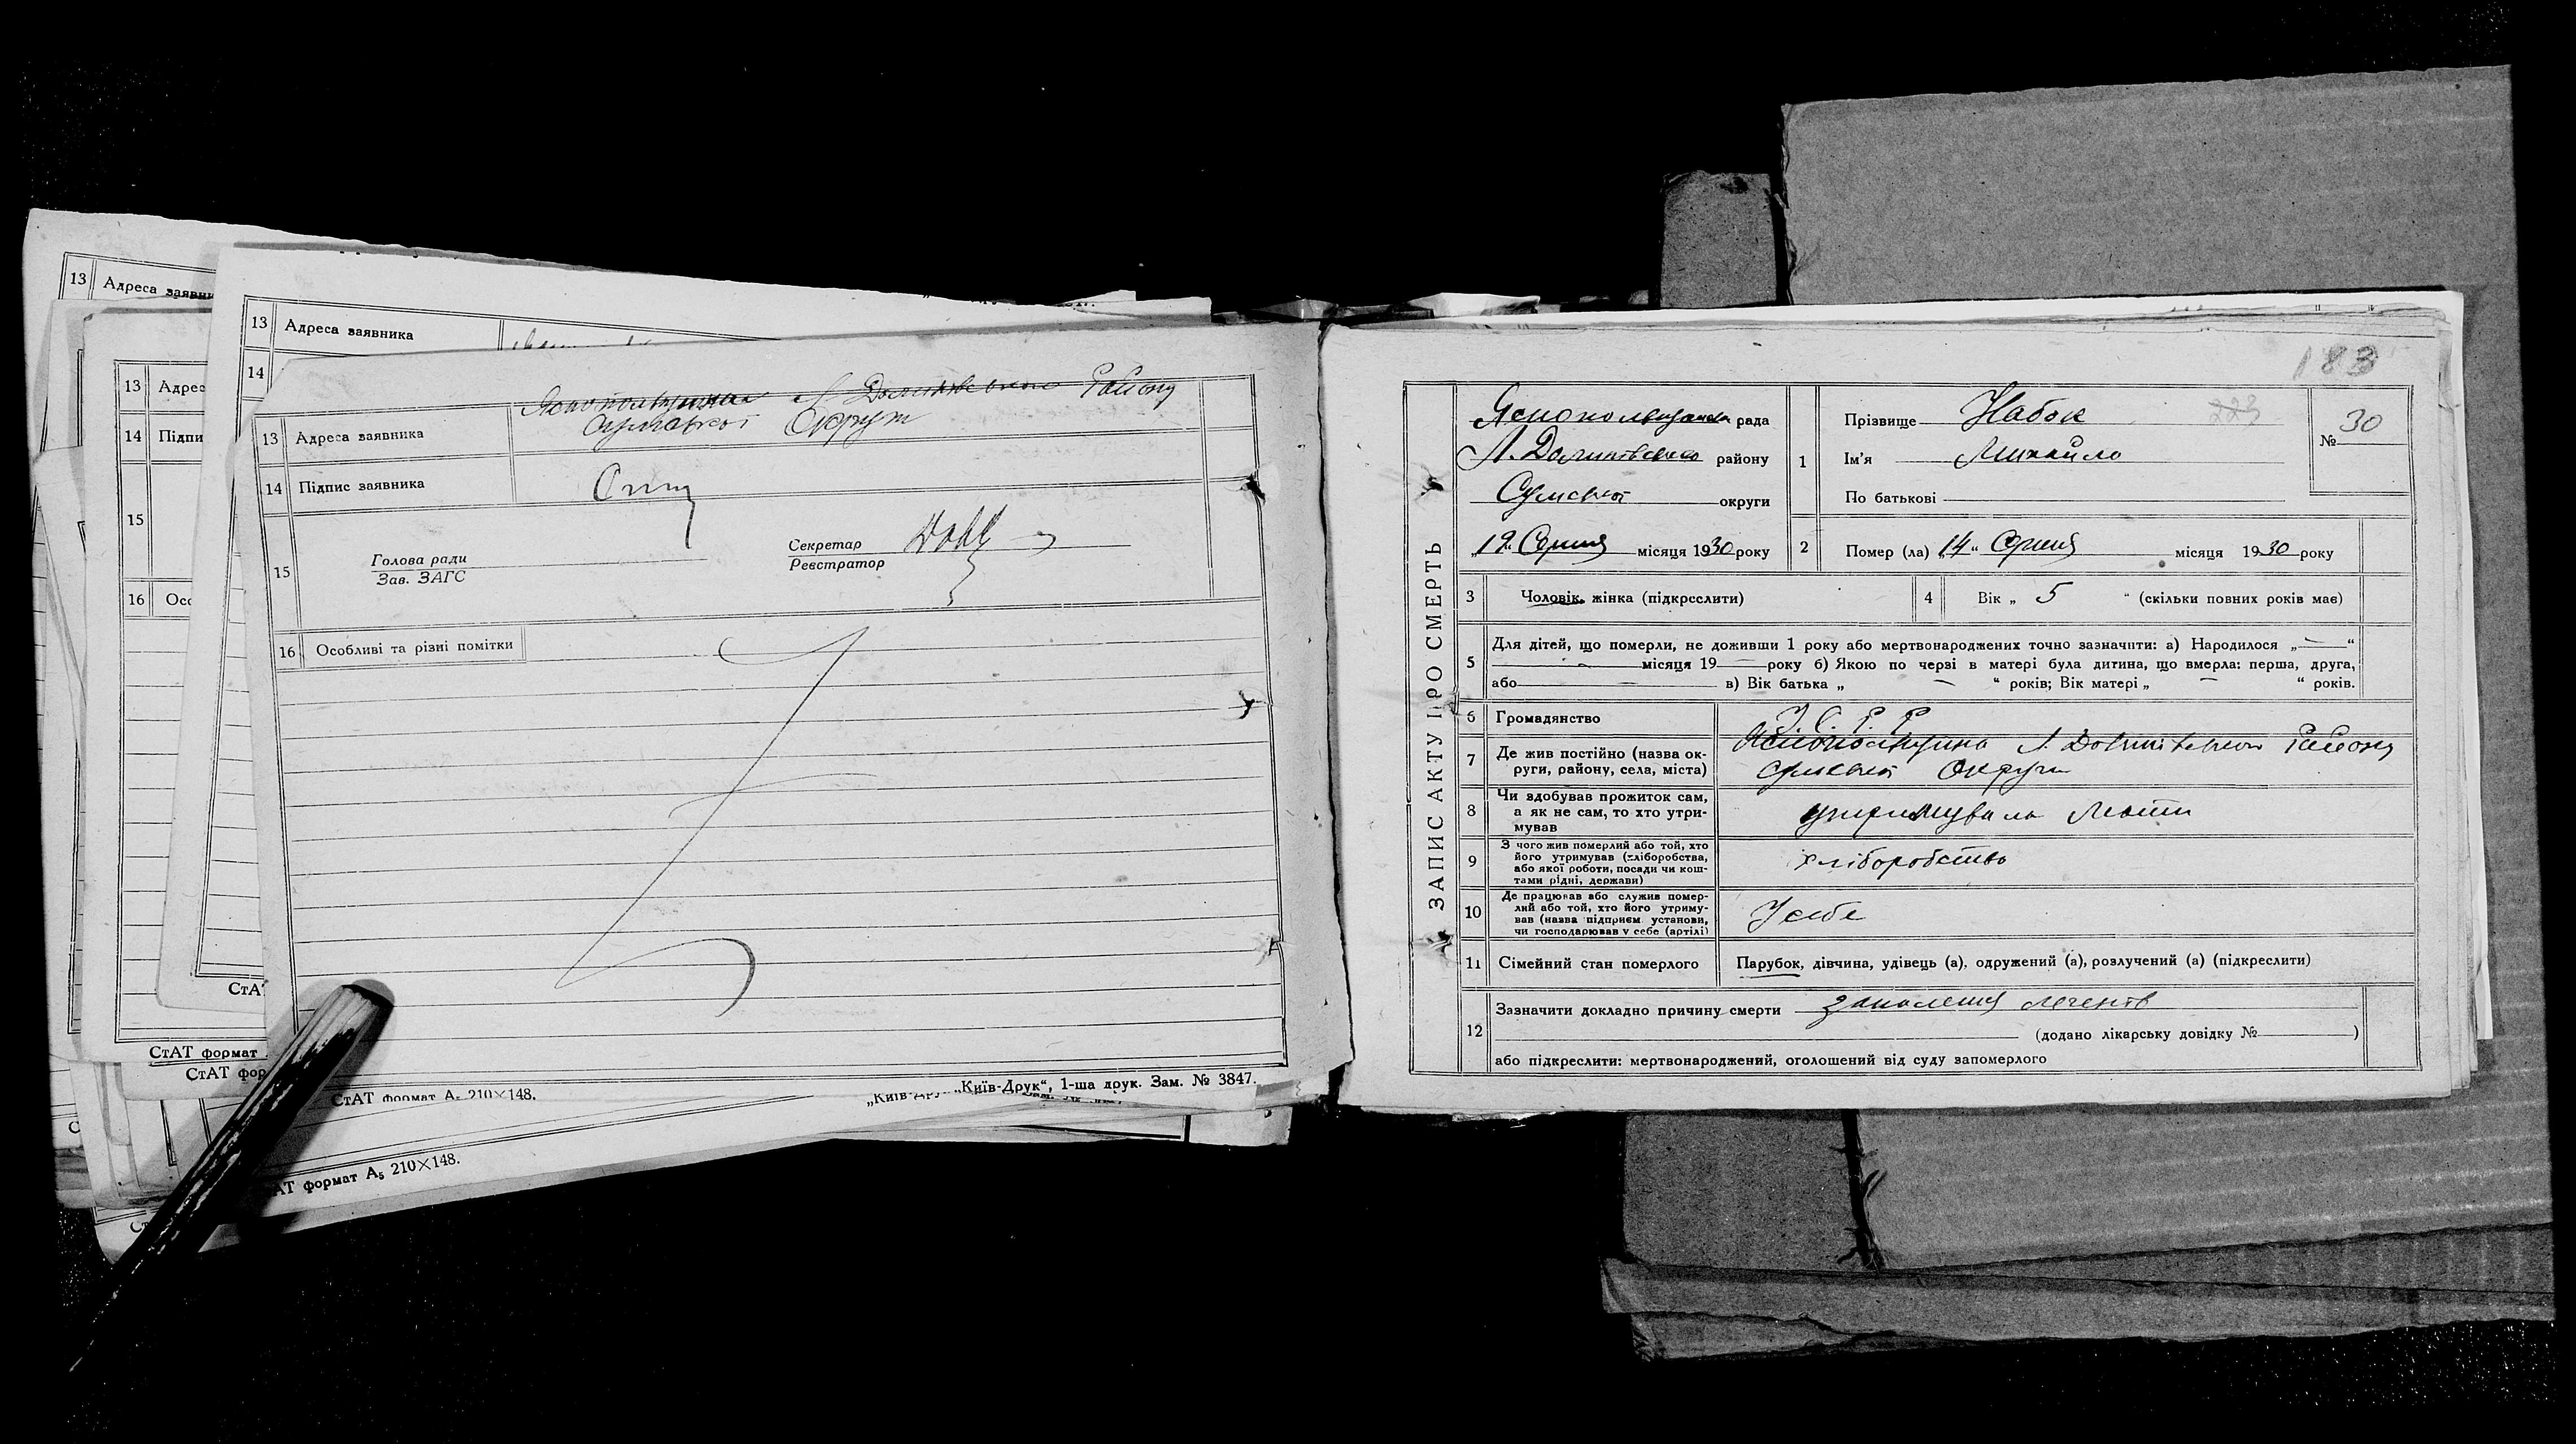 13 Адреса заявни
13 Адрес
14 Підпи
15
16 Осо
13 Адреса заявника
14
Яснопольщина Л. Долинського Району
13 Адреса заявника
Сумської Округи
14 Підпис заявника
15 Голова ради
Зав. ЗАГС
Секретар
Реєстратор
16 Особливі та різні помітки
СтАТ
СтАТ формат
СтАТ фор
СтАТ формат А5 210×148.
„Київ-Друк“, 1-ша друк. Зам. № 3847.
„Київ-Дру
АТ формат А5 210×148.
183
ЗАПИС АКТУ ПРО СМЕРТЬ
рада
Л. Долинського району
Сумської округи
„12“ Серпня місяця 1930 року
1 Прізвище Набок
223
Ім'я Михайло
По батькові
№ 30
2 Помер (ла) „14“ Серпня місяця 1930 року
3 Чоловік, жінка (підкреслити)
4 Вік „ 5 “ (скільки повних років має)
5 Для дітей, що померли, не доживши 1 року або мертвонароджених точно зазначити: а) Народилося „ — “
місяця 19 — року б) Якою по черзі в матері була дитина, що вмерла: перша, друга,
або — в) Вік батька „ — “ років; Вік матері „ — “ років.
6 Громадянство У. С. Р. Р.
7 Де жив постійно (назва ок-
руги, району, села, міста)
Яснопольщина Л. Долинського Району
Сумської Округи
8 Чи здобував прожиток сам,
а як не сам, то хто утри-
мував
утримувала Мати
9 З чого жив померлий або той, хто
його утримував (хліборобства,
або якої роботи, посади чи кош-
тами рідні, держави)
хліборобство
10 Де працював або служив помер-
лий або той, хто його утриму-
вав (назва підприєм. установи,
чи господарював у себе (артілі)
У себе
11 Сімейний стан померлого
Парубок, дівчина, удівець (а), одружений (а), розлучений (а) (підкреслити)
12 Зазначити докладно причину смерти запалення легенів
(додано лікарську довідку № )
або підкреслити: мертвонароджений, оголошений від суду запомерлого